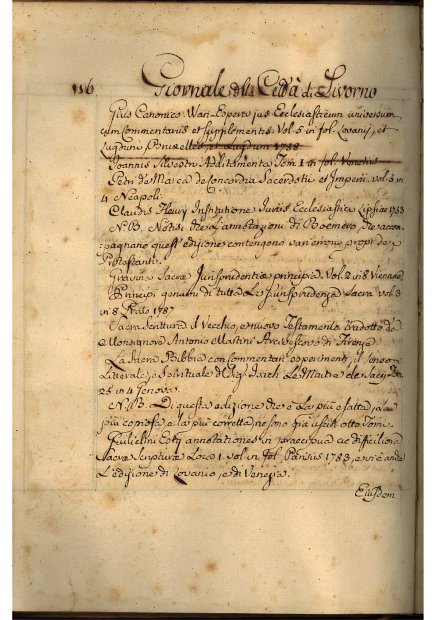 116 Giornale della Città di Livorno
Gius Canonico Wan-Espen jus Ecclesiasticum universum
cum Commentariis et Supplementis Vol. 5 in fol. Lovanis, et
Lugduni Bruxelles, et Lugdum 1738
Joannis Additamenta Tom. 1 in fol. Venetiis
Petri de Marca de Concordia Sacerdotii et Imperii vol. 8 in
4 Neapoli
Claudis Fleury Institutione Juris Ecclesiastica Lipsiae 1753
N.B. Notisi che l'annotazioni di Boemero, che accom-
pagnano quest'edizione contengono vari errori propri de
Protestanti.
Gravina Sacrae Jurisprudentiae principia Vol. 2 in 8 Vienanae
Principi genuini di tutta la Jiurisprudenza Sacra vol. 3
in 8 Prato 1787
Sacra Scrittura il Vecchio, e nuovo Testamento tradotto da
Monsignore Antonio Martini Arcivescovo di Firenze
La Sacra Bibbia con commentari esprimenti il senso
Litterale, e Spirituale di Le Maitre de Saci
25 in 4 Genova
N.B. Di questa edizione che è la più esatta, la
più copiosa e la più corretta ne sono già usciti otto Tomi
Guilielini Esty annotationes in praecipua ac difficiliora
Sacrae Scripturae Loca 1 vol. in fol. Parisiis 1783, e vi è anche
L'edizione di Lovanio, e di Venezia.
Eiusdem